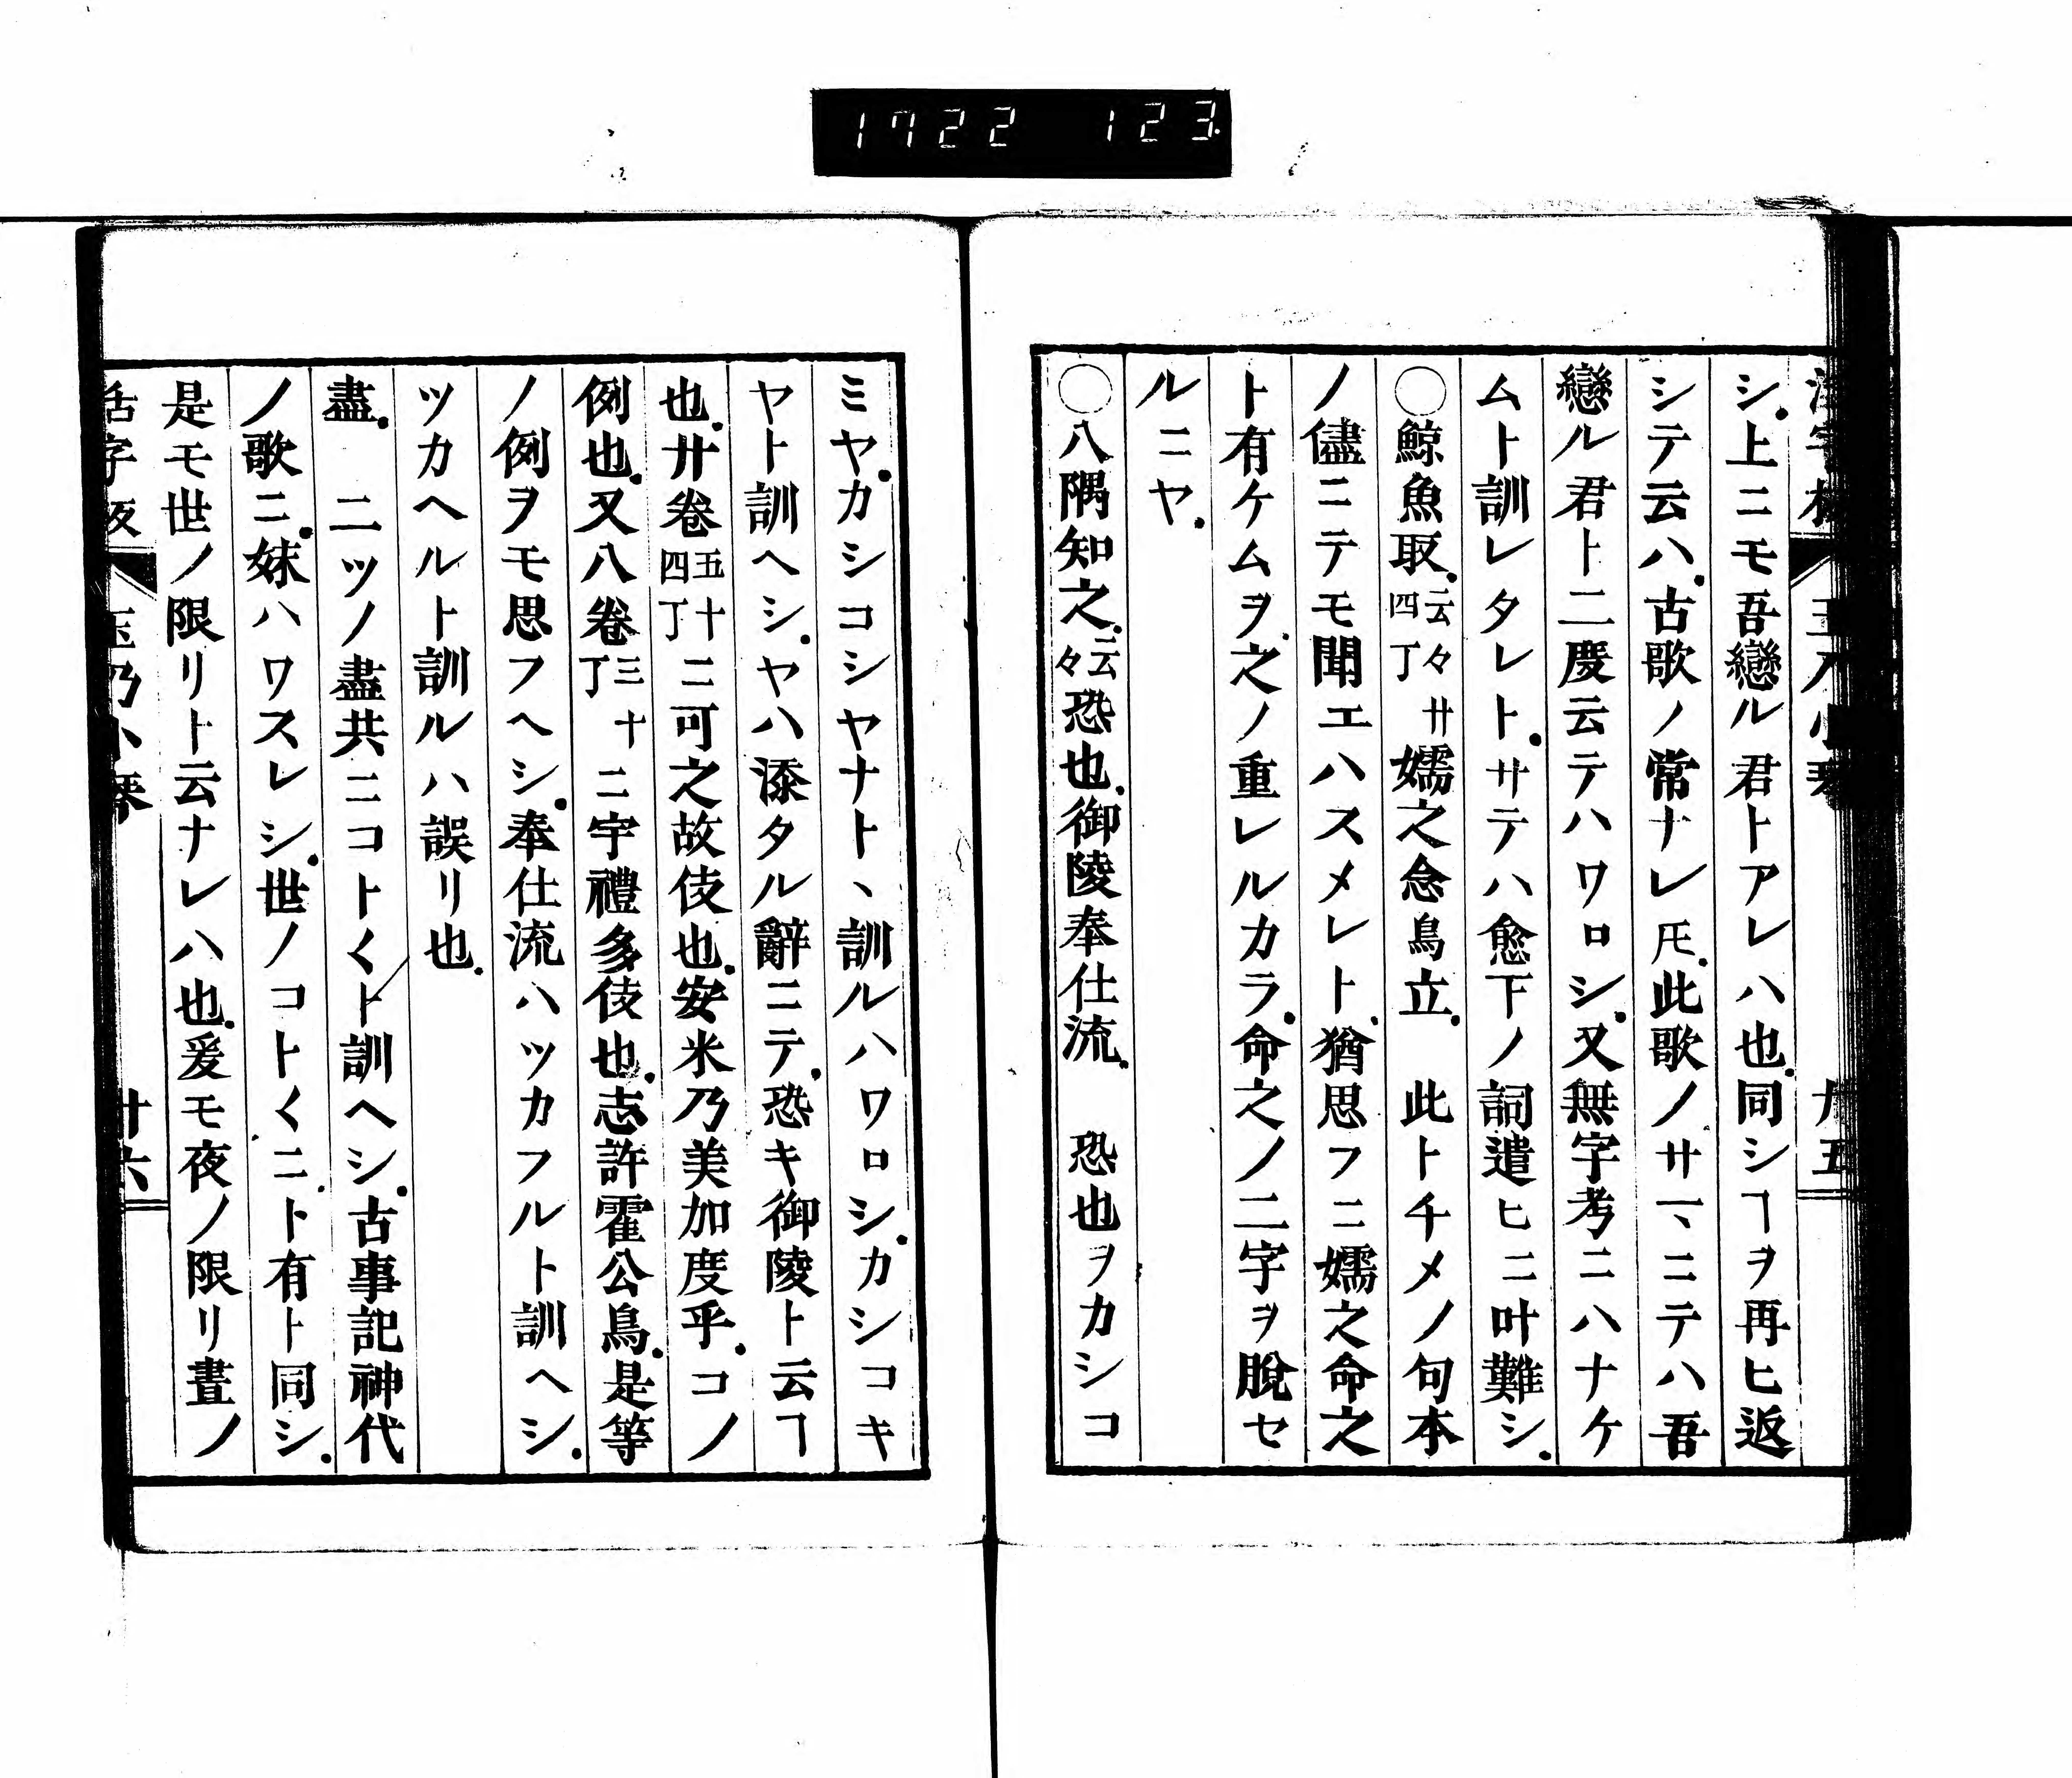 1722 123
シ．上ニモ吾戀ル君トアレハ也．同シヿヲ再ヒ返
シテ云ハ．古歌ノ常ナレ𪜈．此歌ノサマヽニテハ吾
戀ル君ト二度云テハワロシ．又無字考ニハナケ
ムト訓レタレト．サテハ愈下ノ詞遣ヒニ叶難シ．
○鯨魚取．云々廿四丁嬬之念鳥立．　此トチメノ句本
ノ儘ニテモ聞エハスメレト．猶思フニ嬬之命之
ト有ケムヲ．之ノ重レルカラ．命之ノ二字ヲ脫セ
ルニヤ．
○八隅知之．云々恐也．御陵奉仕流．　恐也ヲカシコ
ミヤ．カシコシヤナトヽ訓ルハワロシ．カシコキ
ヤト訓ヘシ．ヤハ添タル辭ニテ．恐キ御陵ト云ヿ
也．廿卷五十四丁ニ可之故伎也．安米乃美加度乎．コノ
例也．又八卷三十丁ニ宇禮多伎也．志許霍公鳥．是等
ノ例ヲモ思フヘシ．奉仕流ハツカフルト訓ヘシ．
ツカヘルト訓ルハ誤リ也．
盡．　二ツノ盡共ニコト〱ト訓ヘシ．古事記神代
ノ歌ニ．妹ハワスレシ．世ノコト〱ニ．ト有ト同シ．
是モ世ノ限リト云ナレハ也．爰モ夜ノ限リ晝ノ
活字版　玉乃小琴　廿六